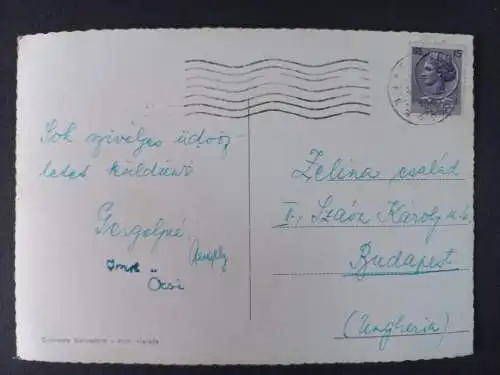 Sok szivéljes üdvöz-
letet küldünk
Gergelyné
Gergely
Imre
Öcsi
Zelina család
I., Szász Károly u. 6.
Budapest
(Ungheria)